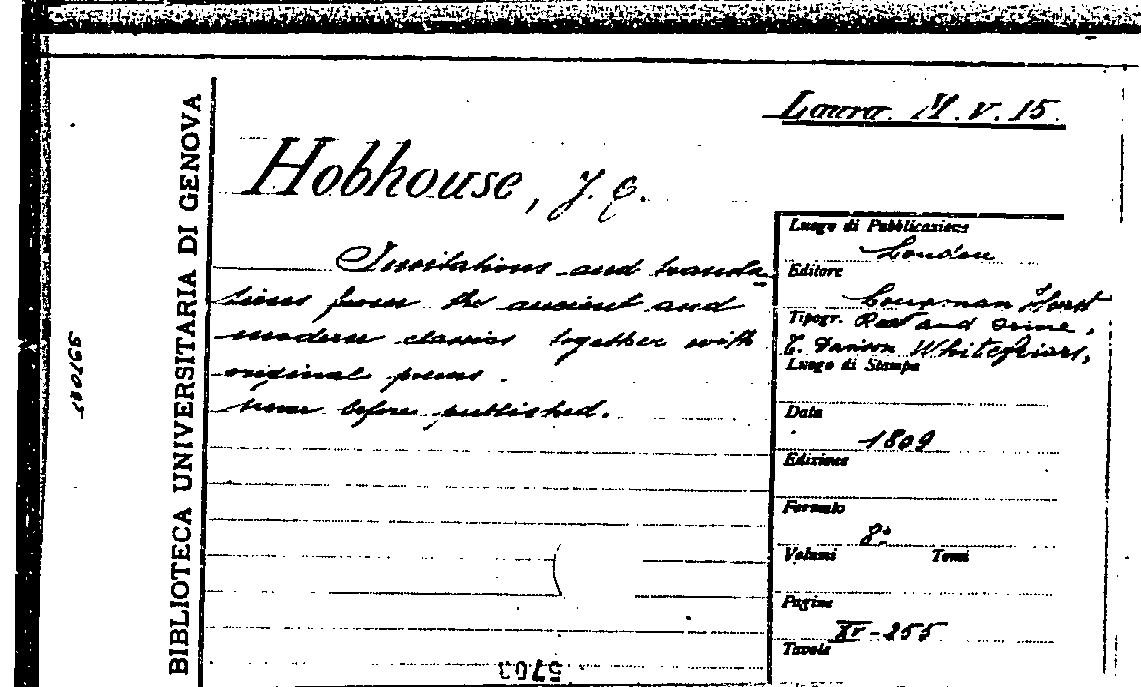 Laura. M. V. 15.
Hobhouse, J. C.
Imitations and transla_
tions from the ancient and
modern classics together with
original poems.
never before published.
Luogo di Pubblicazione
London
Editore
Longman Hurst
Tipogr. Rees and Orme,
T. Davison Whitefriars,
Luogo di Stampa
Data
1809
Edizione
Formato
8º
Volumi Tomi
Pagine
XV-255
Tavole
BIBLIOTECA UNIVERSITARIA DI GENOVA
5703